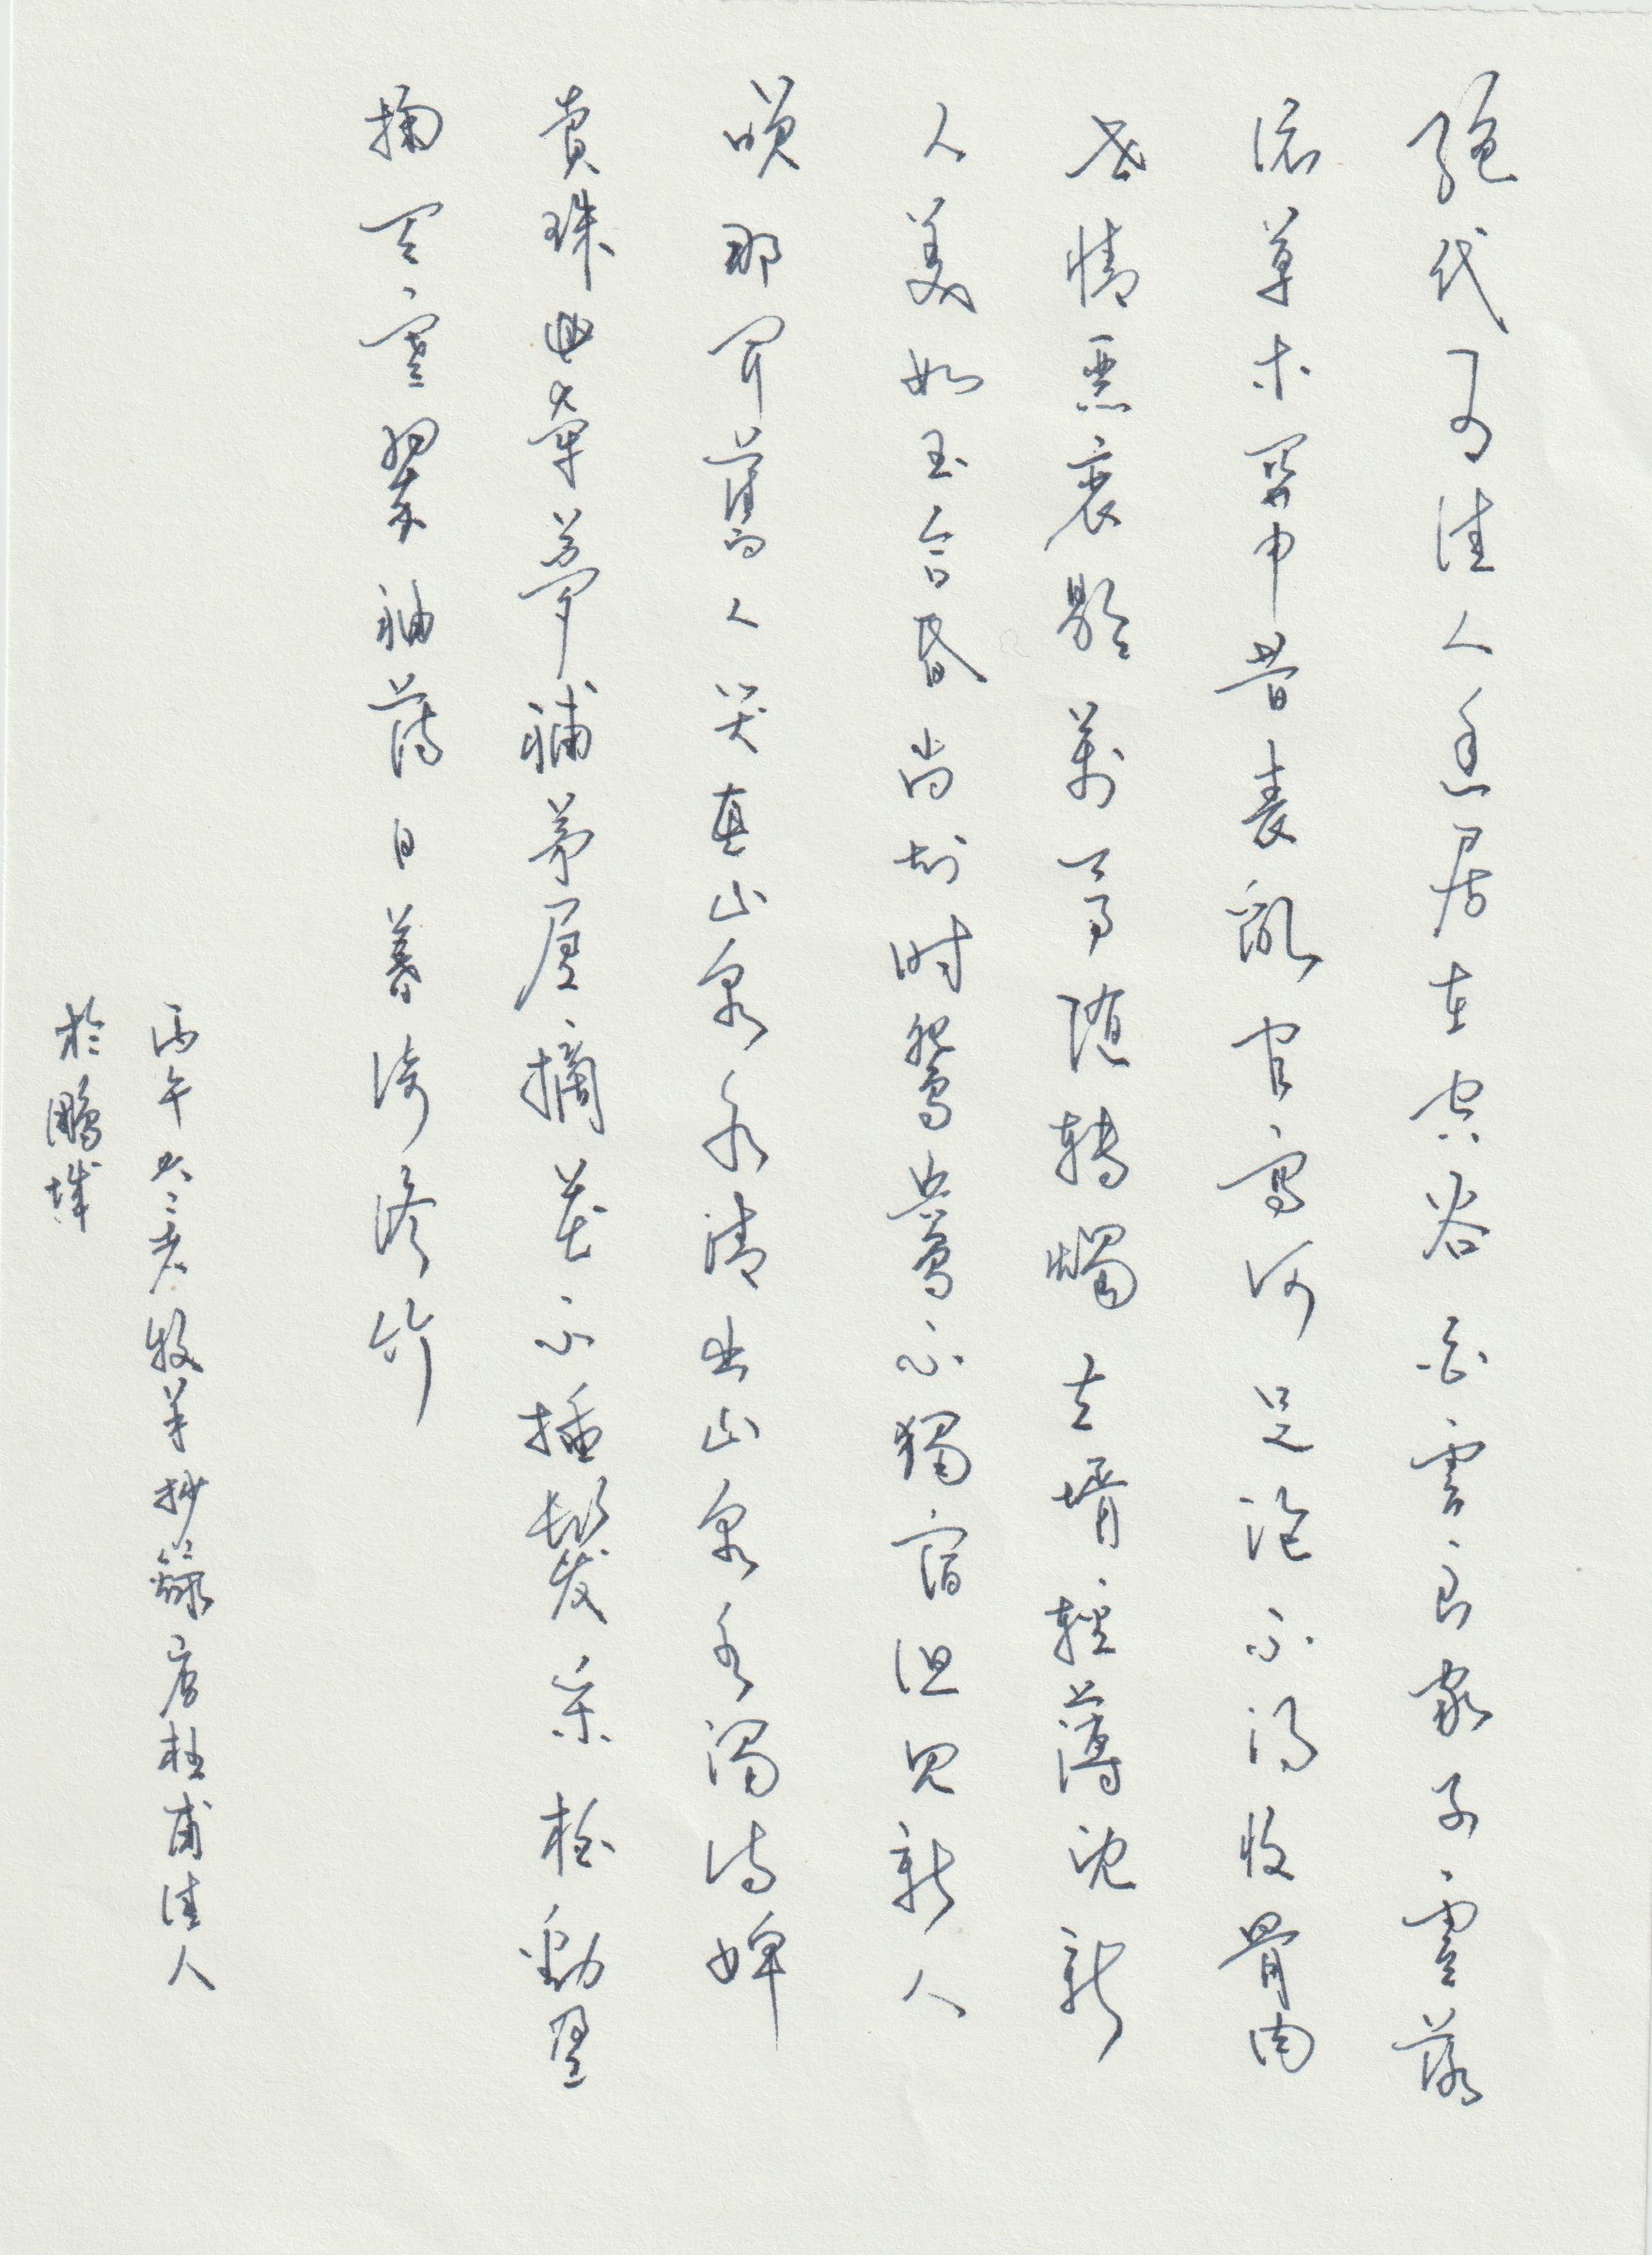 絕代有佳人幽居在空谷自雲良家子零落
依草木關中昔喪亂官高何足論不得收骨肉
世情惡衰歇萬事隨轉燭夫婿輕薄兒新
人美如玉合昏尚知時鴛鴦不獨宿但見新人
笑那聞舊人哭在山泉水清出山泉水濁侍婢
賣珠回牽蘿補茅屋摘花不插髮采柏動盈
掬天寒翠袖薄日暮倚修竹
丙午牧羊抄錄唐杜甫佳人
於鵬城